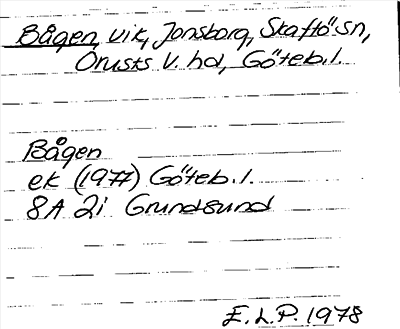 Bågen, vik, Jonsborg, Skaftö sn,
Orusts V. hd, Göteb. l.
Bågen
ek (1977) Göteb. l.
8A 2i Grundsund
E. L. P. 1978